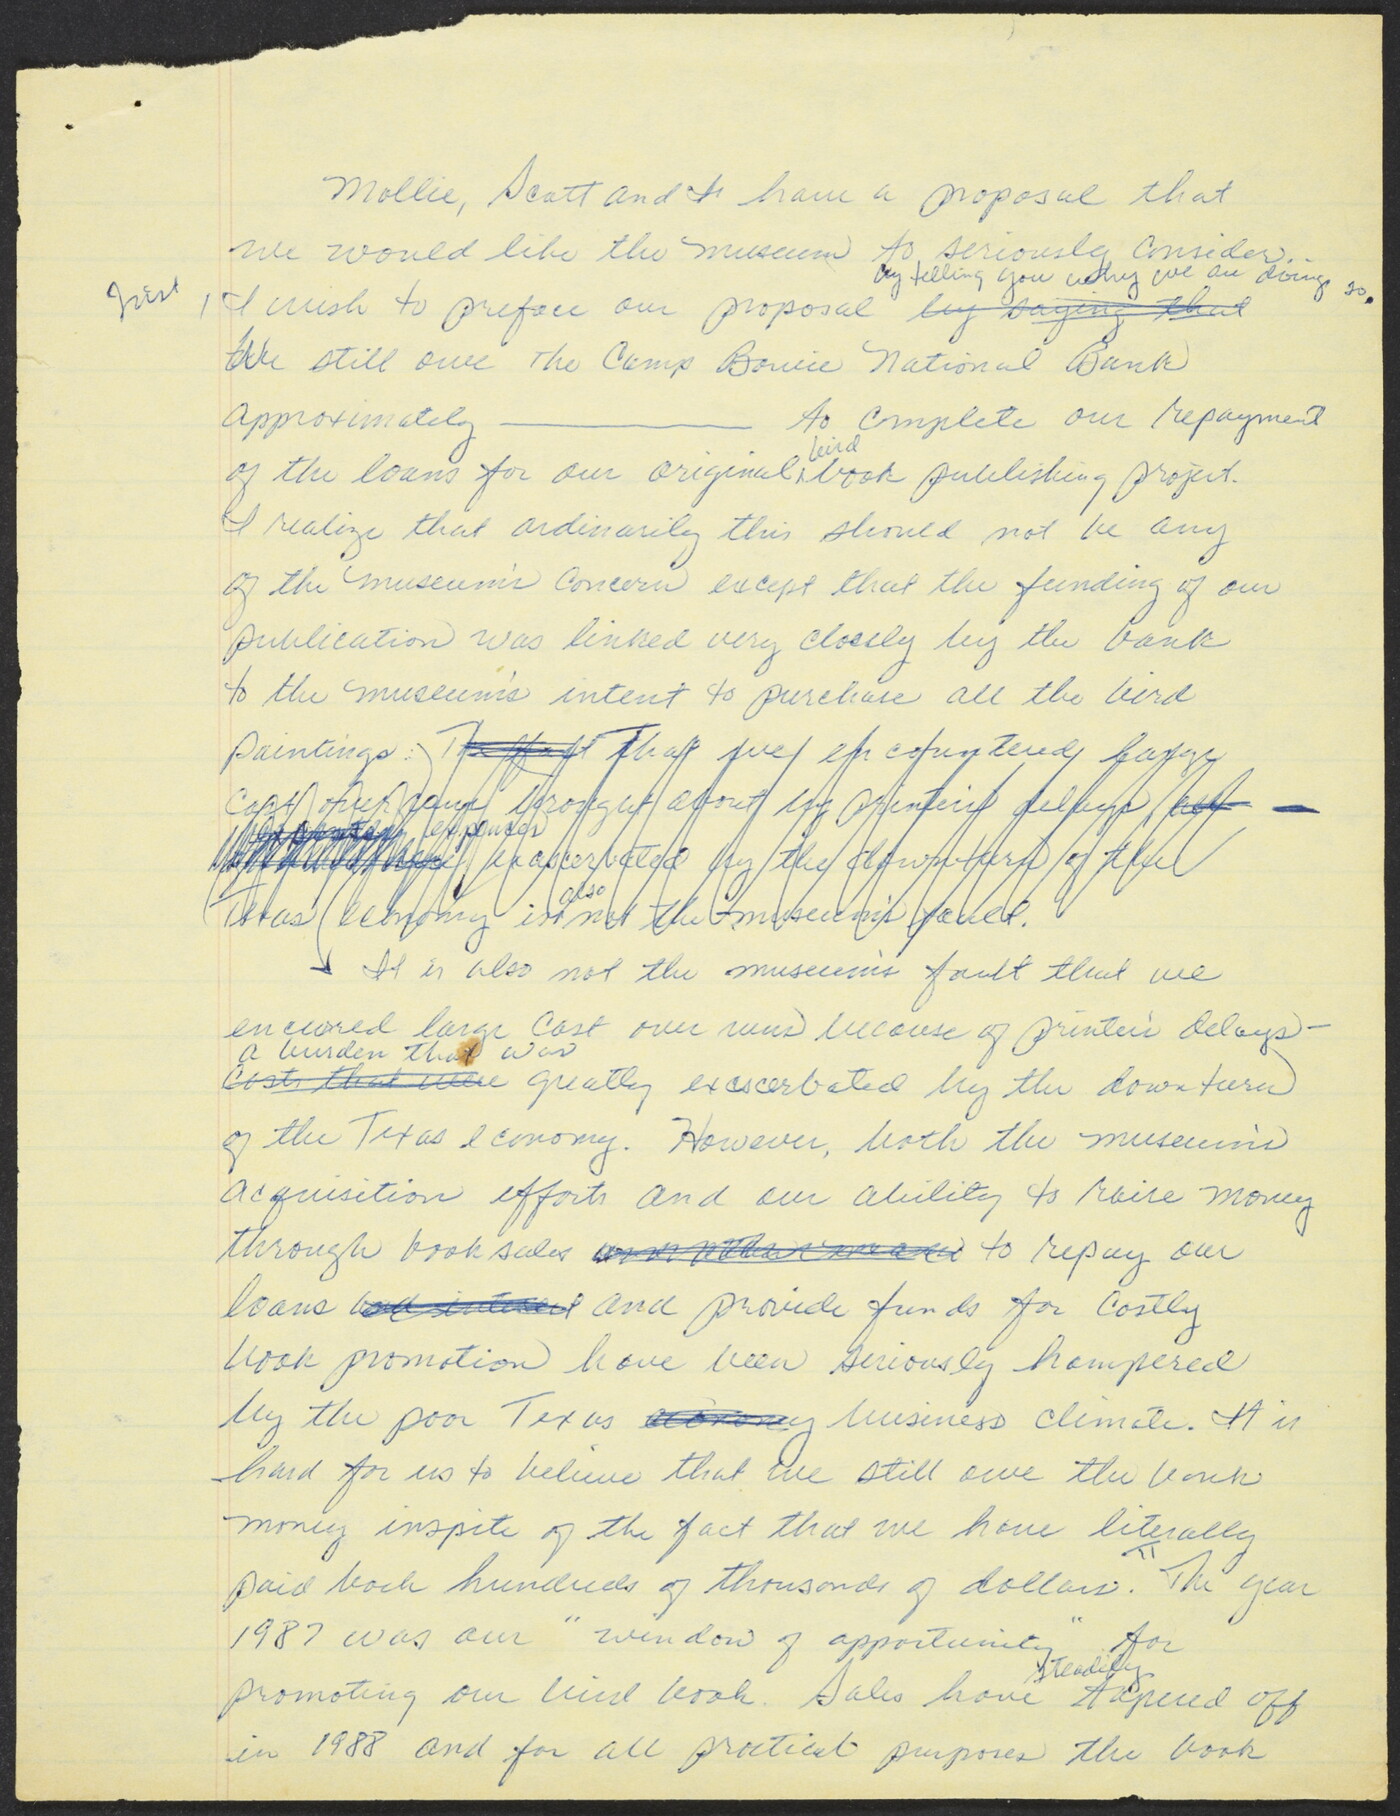 Mollie, Scott and I have a proposal that
we would like the museum to seriously consider.
by telling you why we are doing so.
First, I wish to preface our proposal by saying that
We still owe the Camp Bowie National Bank
approximately ———— to complete our repayment
bird
of the loans for our original book publishing project.
I realize that ordinarily this should not be any
of the museum's concern except that the funding of our
publication was linked very closely by the bank
to the museum's intent to purchase all the bird
paintings. The fact that we encountered large
cost over runs brought about by printer's delays
expenses
exascerbated by the downturn of the
also
Texas economy is not the museum's fault.
It is also not the museum's fault that we
encurred large cost over runs because of printer's delays —
a burden that was
costs that were greatly exascerbated by the downturn
of the Texas economy. However, both the museum's
acquisition efforts and our ability to raise money
through book sales to repay our
loans and interest and provide funds for costly
book promotion have been seriously hampered
by the poor Texas economy business climate. It is
hard for us to believe that we still owe the bank
money inspite of the fact that we have literally
paid back hundreds of thousands of dollars. The year
1987 was our "window of opportunity" for
steadily
promoting our bird book. Sales have tapered off
in 1988 and for all practical purposes the book